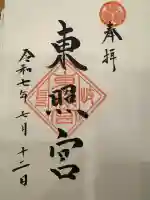 奉拝
東照宮
令和七年七月十二日